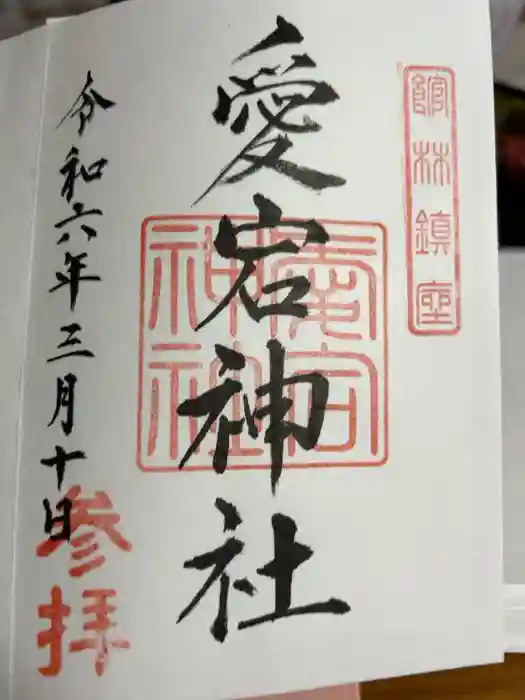 館林鎮座
愛宕神社
愛宕神社
令和六年三月十日
参拝